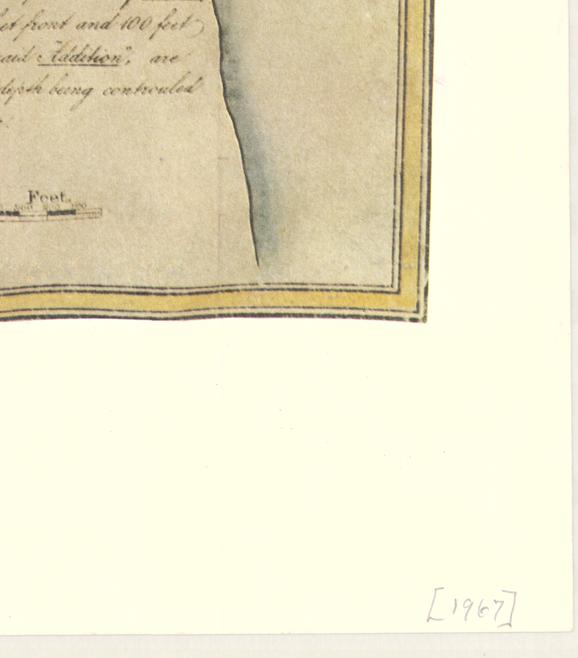 et front and 100 feet
said Addition", are
depth being controuled
Feet.
[1967]